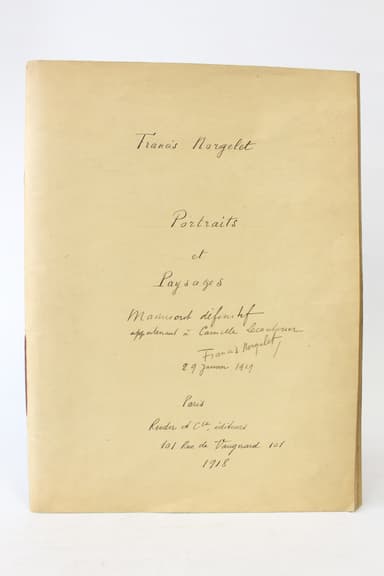 Francis Norgelet
Portraits
et
Paysages
Manuscrit définitif
appartenant à Camille
Francis Norgelet
29 Janvier 1919
Paris
Rieder et Cie, éditeurs
101 Rue de Vaugirard 101
1918